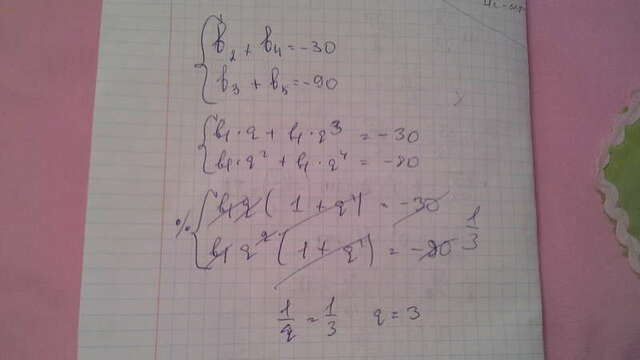 b₂ + b₄ = -30
b₃ + b₅ = -90
b₁·q + b₁·q³ = -30
b₁·q² + b₁·q⁴ = -90
% b₁q (1 + q²) = -30
b₁q² (1 + q²) = -90 1/3
1/q = 1/3 q = 3